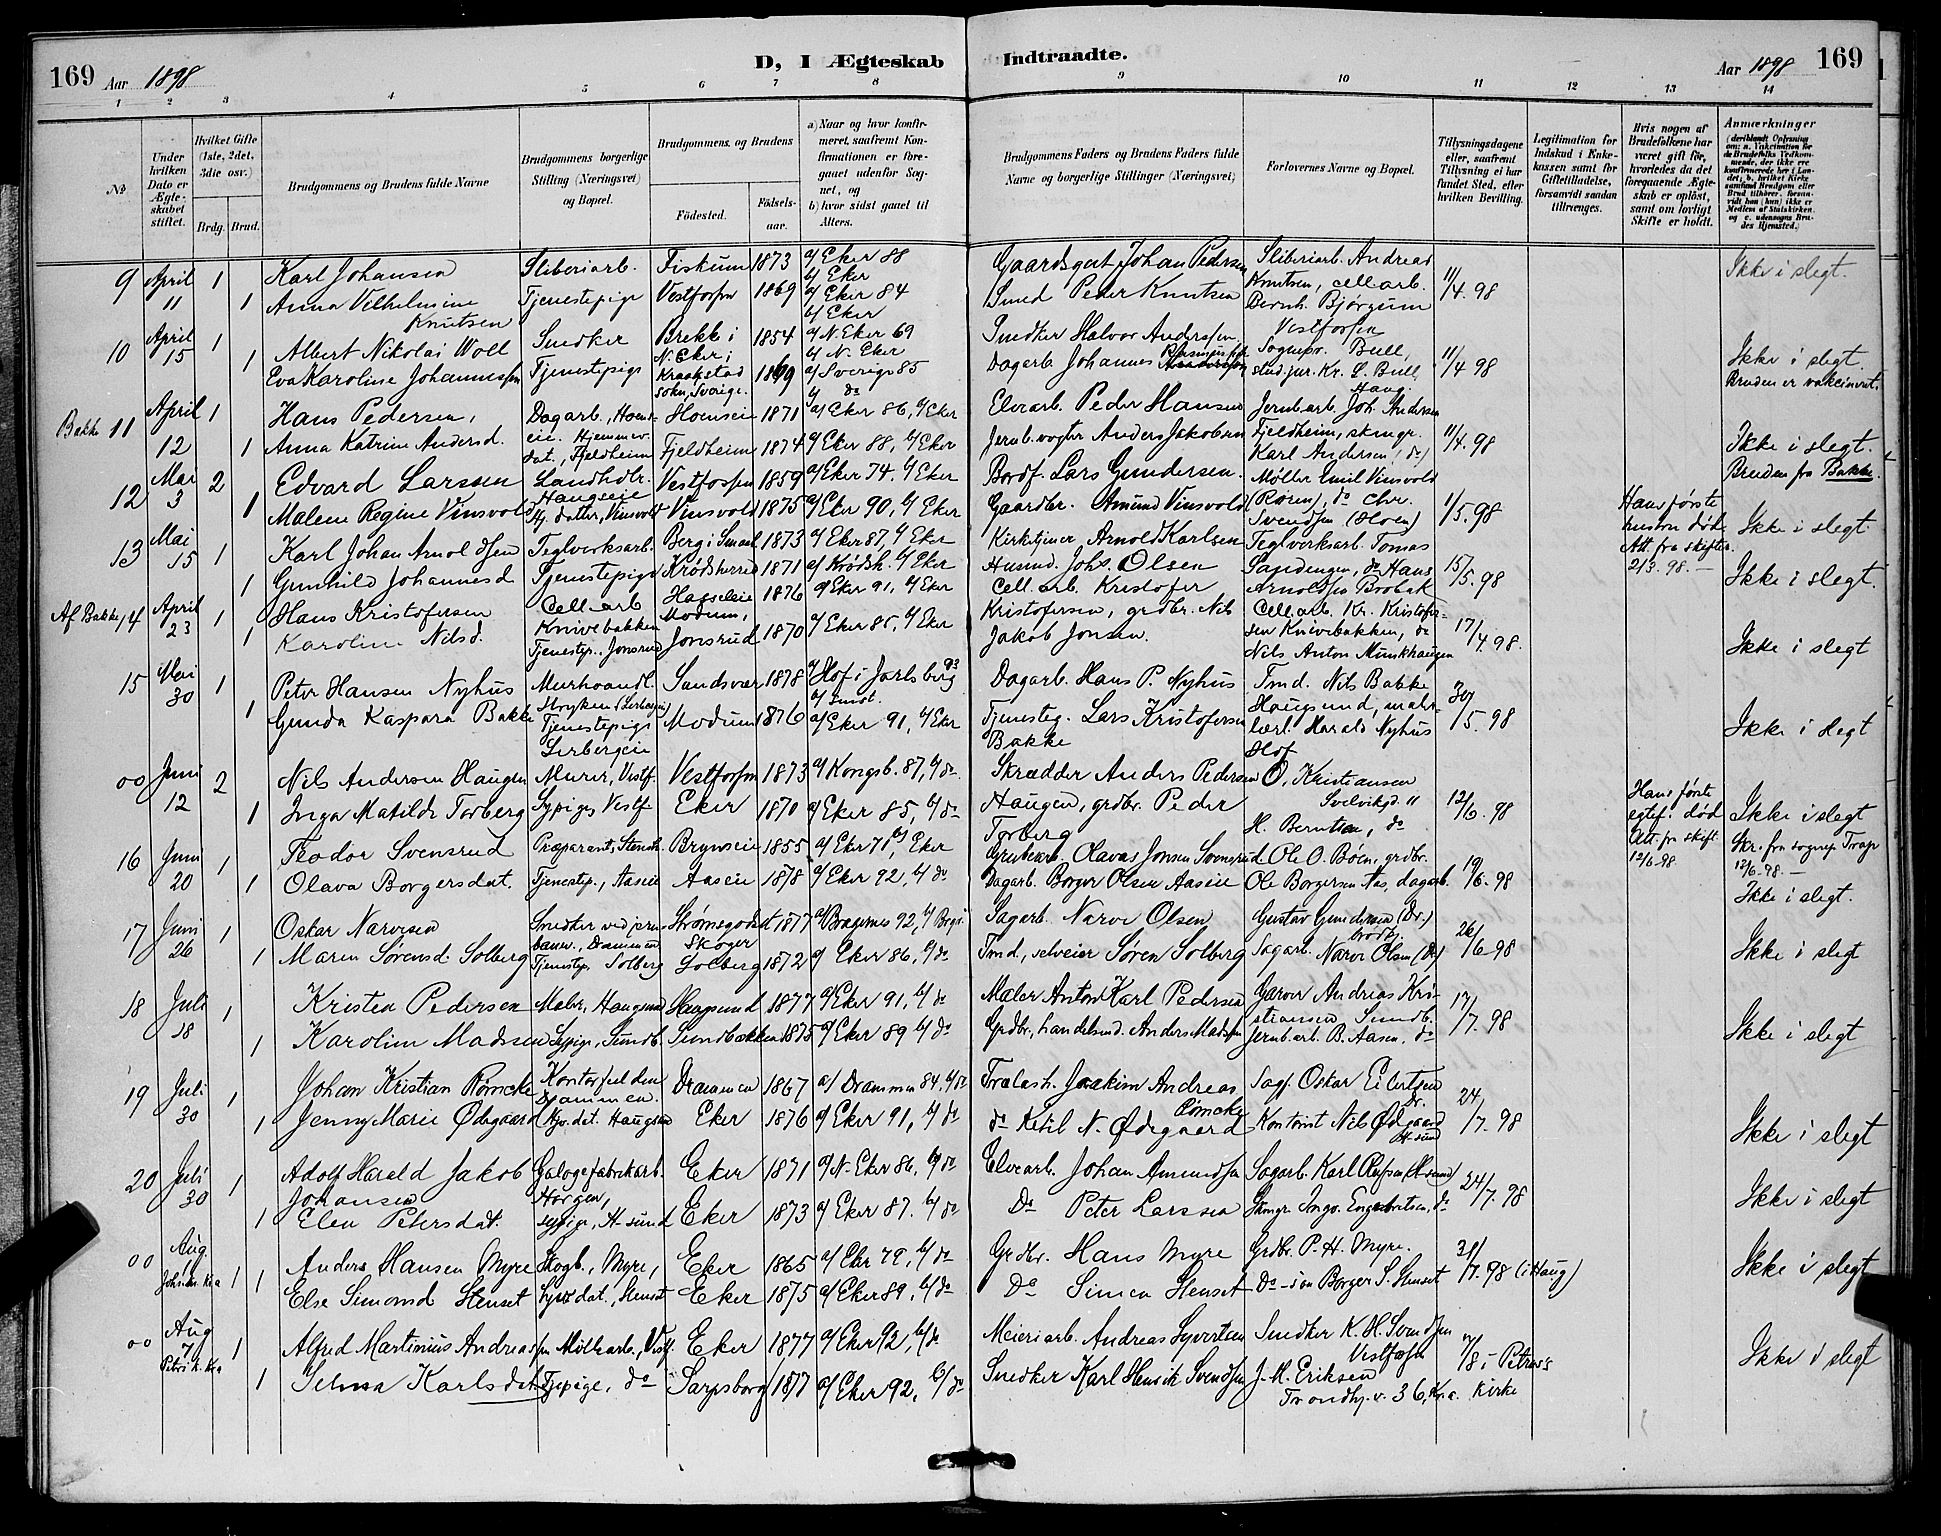 169 Aar 1898 D, I Ægteskab Indtraadte. Aar 1898 169
1 2 3 4 5 6 7 8 9 10 11 12 13 14
No.
Under hvilken Dato er Ægteskabet stiftet.
Hvilket Gifte (1ste, 2det, 3die osv.)
Brdg. Brud.
Brudgommens og Brudens fulde Navne
Brudgommens borgerlige Stilling (Næringsvei) og Bopæl.
Brudgommens og Brudens
Fødested. Fødselsaar.
a) Naar og hvor konfirmeret, saafremt Konfirmationen er foregaaet udenfor Sognet, og
b) hvor sidst gaaet til Alters.
Brudgommens Faders og Brudens Faders fulde Navne og borgerlige Stillinger (Næringsvei)
Forlovernes Navne og Bopæl.
Tillysningsdagene eller, saafremt Tillysning ei har fundet Sted, efter hvilken Bevilling.
Legitimation for Indskud i Enkekassen samt for Giftetilladelse, forsaavidt saadan tiltrænges.
Hvis nogen af Brudefolkene har været gift før, hvorledes da det foregaaende Ægteskab er opløst, samt om lovligt Skifte er holdt.
Anmærkninger
9 April 11 1 Karl Johansen Sliberiarb. Fiskum 1873 a/ Eker 88 b/ Eker Gaardsgut Johan Pedersen Sliberiarb. Andreas Knutsen, cellarb. 11/4. 98 Ikke i slegt.
1 Anna Vilhelmine Knutsen Tjenestepige Vestfossen 1869 a/ Eker 84 b/ Eker Smed Peder Knutsen Bernh. Bjørgum Vestfossen
10 April 15 1 Albert Nikolai Woll Snedker Brekke i N. Eker 1854 a/ N. Eker 69 b/ N. Eker Snedker Halvor Andersen Sognepr. Bull, 11/4 98 Ikke i slegt.
1 Eva Karoline Johannessen Tjenestepige Kraakstad sokn, Sverige 1869 a/ Sverige 85 b/ do Dagarb. Johannes stud. jur. Kr. L. Bull, Haug. Bruden er vakcineret.
Bakke 11 April 12 1 Hans Pedersen, Dagarb., Hoenseie. Hoenseie 1871 a/ Eker 86, b/ Eker Elvearb. Peder Hansen Jernb.arb. Joh. Andersen 11/4. 98 Ikke i slegt.
1 Anna Katrine Andersd. Hjemmev. dat., Fjeldheim Fjeldheim 1874 a/ Eker 88, b/ Eker Jernb.vogter Anders Jakobsen Fjeldheim, skingr. Karl Andersen, do Bruden fra Bakke.
12 Mai 3 2 Edvard Larssen Landhdlr. Haugeeie Vestfossen 1859 a/ Eker 74. b/ Eker Bordf. Lars Gundersen. Møller Emil Vinsvold 1/5. 98 Hans første hustru død. Att. fra skifter. 2/3. 98. — Ikke i slegt.
1 Malene Regine Vinsvold Hj. datter, Vinsvold Vinsvold 1875 a/ Eker 90, b/ Eker Gaardbr. Amund Vinsvold (Rosen), do Chr. Svendsen (Hoen)
13 Mai 15 1 Karl Johan Arnoldsen Teglverksarb. Berg i Smaal. 1873 a/ Eker 87, b/ Eker Kirketjener Arnold Karlsen Teglverksarb. Tomas 15/5. 98 Ikke i slegt.
1 Gunhild Johannesd Tjenestepige Krødsherred 1871 a/ Krødsh. b/ Eker Husmd. Johs. Olsen Sandengen, do Hans Arnoldsen Brobak
Af Bakke 14 April 23 1 Hans Kristofersen Cell. arb Knivebakken Hasseleie Modum, 1876 a/ Eker 91, b/ Eker Cell. arb. Kristofer Kristofersen, Cell.arb. Kr. Kristofersen Knivebakken, do 17/4. 98. Ikke i slegt
1 Karoline Nilsd. Tjenestep. Jonsrud Jonsrud 1870 a/ Eker 85, b/ Eker grdbr. Nils Jakob Jonsen. Nils Anton Munkhaugen
15 Mai 30 1 Peter Hansen Nyhus Murhaandl. Stryken (Lerbergeie) Sandsvær 1878 a/ Hof i Jarlsberg 93 b/ smst. Dagarb. Hans P. Nyhus Tmd. Nils Bakke Haugsund, maler- 30/5. 98 Ikke i slegt
1 Gunda Kaspara Bakke Tjenestepige Lerbergeie Modum 1876 a/ Eker 91, b/ Eker Tjenesteg. Lars Kristofersen Bakke lærl. Harald Nyhus Hof
00 Juni 12 2 Nils Andersen Haugen Murer, Vestf. Vestfossen 1873 a/ Kongsb. 87, b/ do. Skrædder Anders Pedersen Haugen, O. Kristiansen Svelvikgd. 11 12/6. 98 Hans første egtef. død Att. fra skift. 12/6 98. Ikke i slegt
1 Inga Matilde Torberg Sypige, Vestf Eker 1870 a/ Eker 85, b/ do grdbr. Peder Torberg H. Berntsen, do Skr. fra sognep. Trap 12/6. 98. —
16 Juni 20 1 Teodor Svensrud Præparant, Stensb. Brynseie 1855 a/ Eker 71, b/ Eker Grubearb. Olavas Jonsen Svensrud Ole O. Bøen, grdbr. 19/6. 98 Ikke i slegt.
1 Olava Borgersdat. Tjenestep., Aaseie Aaseie 1878 a/ Eker 92, b/ do Dagarb. Borger Olsen Aaseie Ole Borgersen Aas, dagarb.
17 Juni 26 1 Oskar Narvesen Snedker ved jernbanv., Drammen Strømsgodset 1877 a/ Bragernes 92, b/ Brgs. Sagarb. Narve Olsen Gustav Gundersen (Dr.) 26/6. 98 Ikke i slegt
1 Maren Sørensd. Solberg Tjenestep. Solberg Skoger Solberg 1872 a/ Eker 86, b/ do Tmd, selveier Søren Solberg Sagarb. Narve Olsen (Dr)
18 Juli 18 1 Kristen Pedersen Maler, Haugsund Haugsund 1877 a/ Eker 91, b/ do Maler Anton Karl Pedersen Garver Andreas Kristiansen Sundb. 17/7. 98 Ikke i slegt
1 Karoline Madssen Sypige, Sundb. Sundbakken 1875 a/ Eker 89 b/ do Grdbr., handelsmd. Anders Madssen Jernb.arb. B. Aasen, do
19 Juli 30 1 Johan Kristian Rømcke Kontorfuldm. Drammen. Drammen 1867 a/ Drammen 84, b/ do Trælasth. Joakim Andreas Rømcke Sagf. Oskar Eilertsen Dr. 24/7. 98 Ikke i slegt
1 Jenny Marie Ødegaard Hjv. dat. Haugsun Eker 1876 a/ Eker 91, b/ do do Ketil N. Ødegaard Kontorist Nils Ødegaard H-sund
20 Juli 30 1 Adolf Harald Jakob Johansen Galogefabrikarb. Horgen, Eker 1871 a/ N. Eker 86, b/ do Elvearb. Johan Amundsen Sagarb. Karl Olufsen (H.sund) 24/7. 98 Ikke i slegt
1 Elen Petersdat. sypige, H-sund Eker 1873 a/ Eker 87. b/ do Do Peter Larssen Skingr. Ingv. Engebretsen, do
00 Aug. Johs. k. Kra 1 1 Anders Hansen Myre Skogb., Myre, Eker 1865 a/ Eker 79, b/ do Grdbr. Hans Myre Grdbr. P. H. Myre. 31/7. 98 (i Haug) Ikke i slegt
Else Simonsd Stenset Hjv dat., Stenset Eker 1875 a/ Eker 89, b/ do Do Simen Stenset Do -søn Borger S. Stenset
00 Aug 7 Petri k. Kra 1 Alfred Martinius Andreassen Møllearb., Vestf. Eker 1877 a/ Eker 92, b/ do Meieriarb. Andreas Syvertsen Snedker K. H. Svendsen Vestfossen 7/8 i Petrus Kirke Ikke i slegt
1 Selma Karlsdat. Sypige, do Sarpsborg 1877 a/ Eker 92, b/ do Snedker Karl Henrik Svendsen J. M. Eriksen Trondhj. v. 36, Kra.